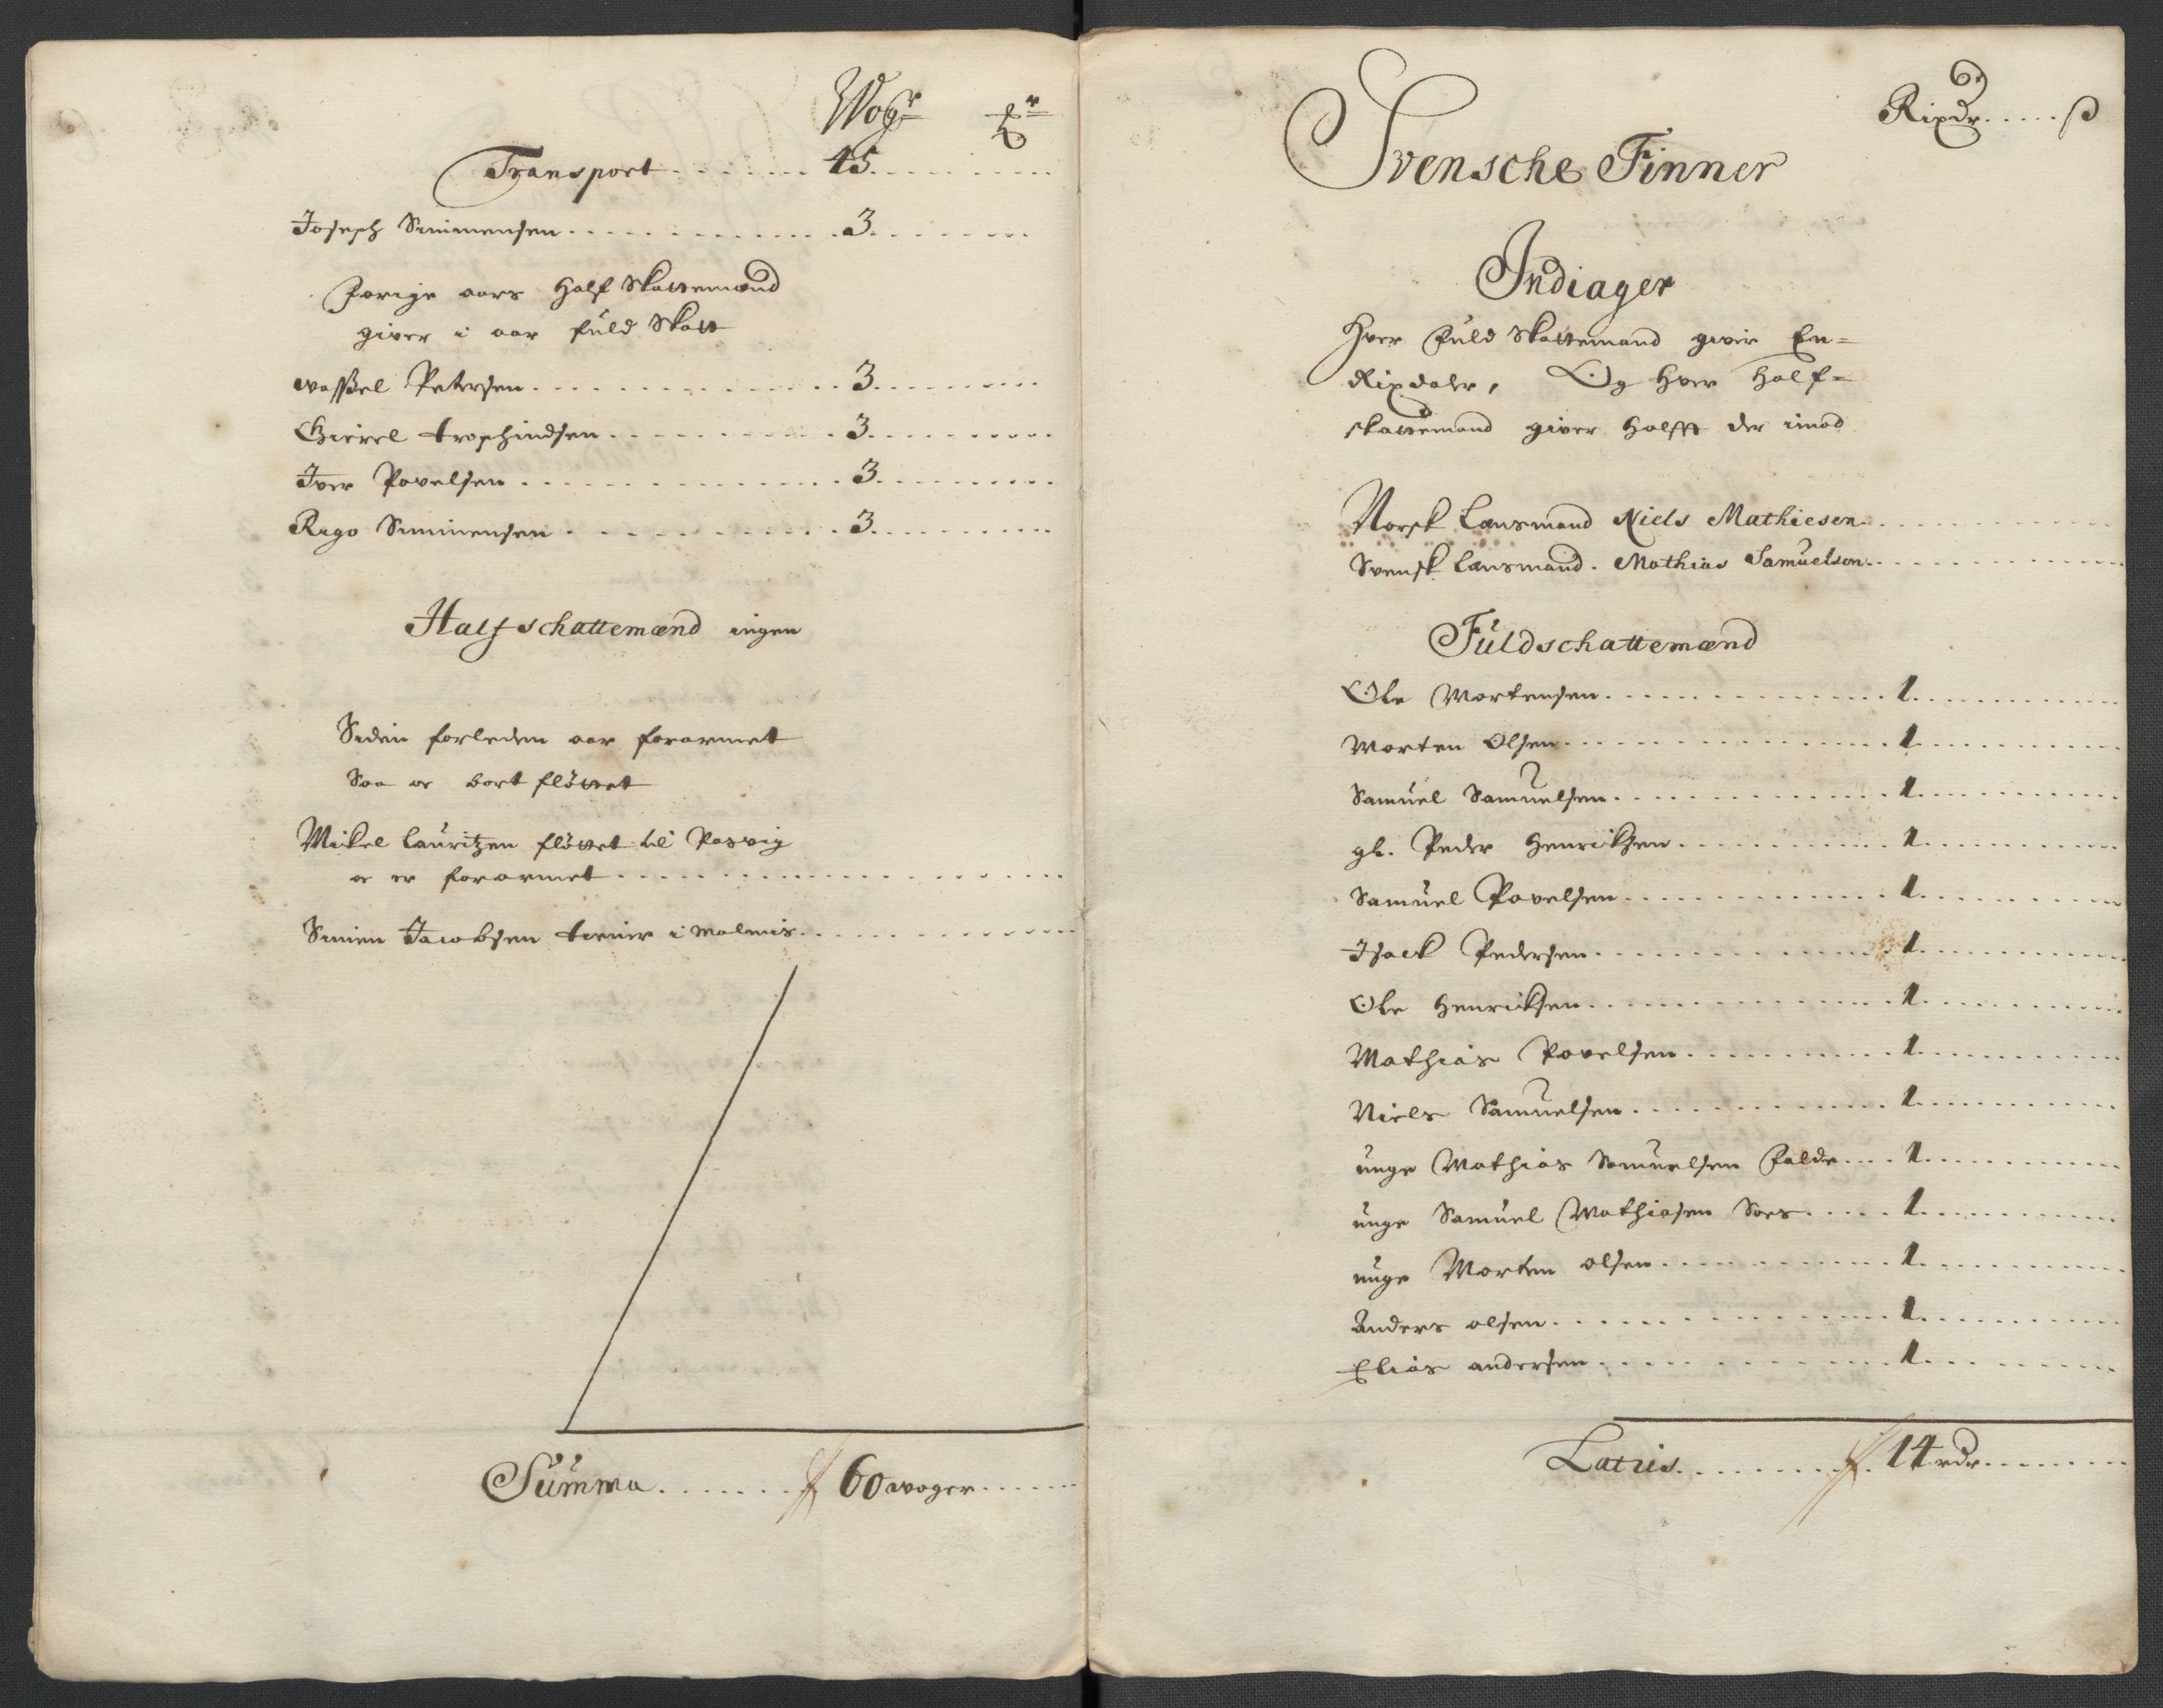 Wogr
Transport 45
Joseph Simmensen 3
Forige aars Half Skattemænd
giver i aar fuld Skatt
wassel Petersen 3
Girvel trophindsen 3
Iver Povelsen 3
Rigo Simmensen 3
Halfschattemænd ingen
Siden forleden aar forarmet
Saa oc bort fløttet
Mikel Lauritzen fløttet til Pasvig
oc er forarmet
Simen Jacobsen tiener i Malmis
Summa 60 woger
Rixdr ß
Svensche Finner
Indiager
Hver Fuld Skattemand giver En-
Rixdaler, Og hver Half-
skattemand giver Halfft der imod
Norsk Lensmand Niels Mathiesen
Svensk Lensmand. Mathias Samuelson
Fuldschattemænd
Ole Mortensen 1
Morten Olsen 1
Samuel Samuelsen 1
gl. Peder Henrikzen 1
Samuel Povelsen 1
Isack Pedersen 1
Ole Henriksen 1
Mathias Povelsen 1
Niels Samuelsen 1
unge Mathias Samuelsen Falde 1
unge Samuel Mathiasen Saes 1
unge Morten olsen 1
Anders olsen 1
Elias andersen 1
Latris 14 rdr